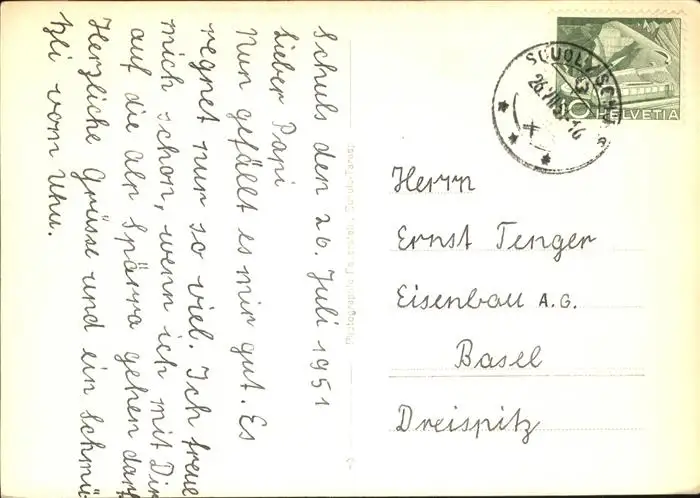 Schuls den 26. Juli 1951
Lieber Papi
Nun gefällt es mir gut. Es
regnet nur so viel. Ich freue
mich schon, wenn ich mit Dir
auf die Alp Spärra gehen darf
Herzliche Grüsse und ein Schmü
tzli vom Uhu.
Herrn
Ernst Tenger
Eisenbau A.G.
Basel
Dreispitz
HELVETIA
10
SCUOL/SCHULS